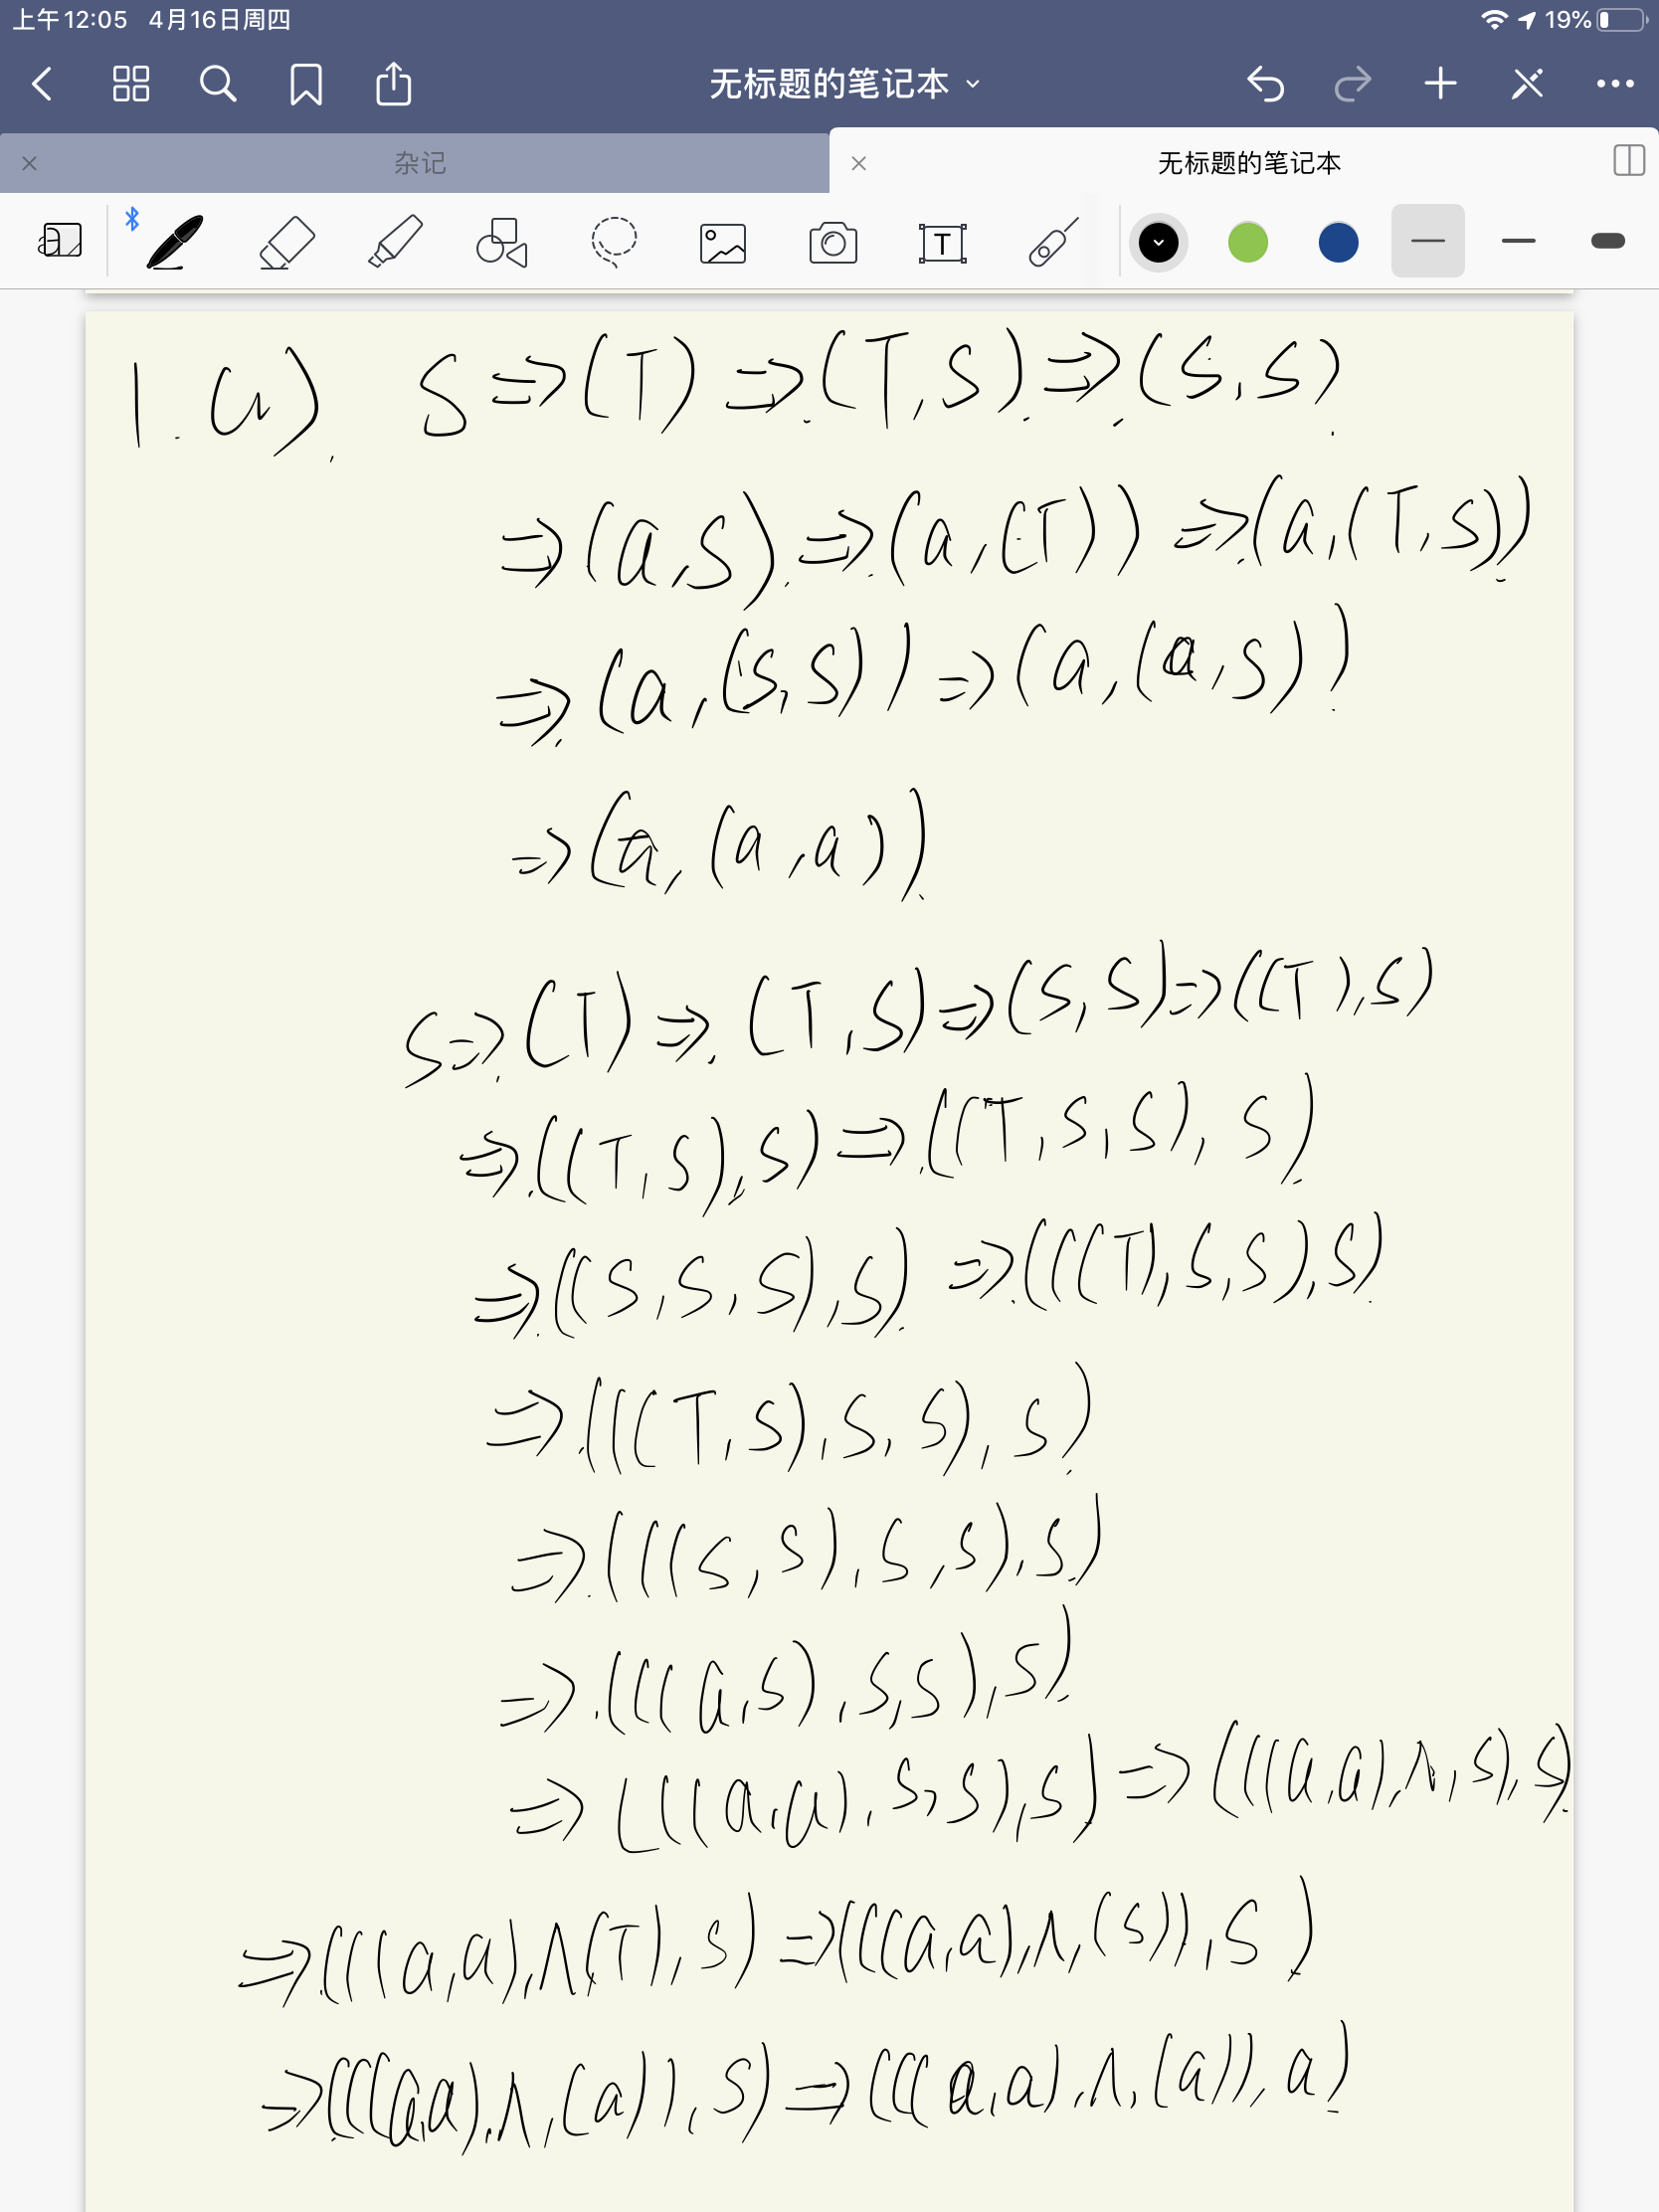 上午12:05 4月16日周四 19%
无标题的笔记本
杂记 无标题的笔记本
T
1. (a). S ⇒ (T) ⇒ (T,S) ⇒ (S,S)
⇒ (a,S) ⇒ (a,(T)) ⇒ (a,(T,S))
⇒ (a,(S,S)) ⇒ (a,(a,S))
⇒ (a,(a,a))
S ⇒ (T) ⇒ (T,S) ⇒ (S,S) ⇒ ((T),S)
⇒ ((T,S),S) ⇒ ((T,S,S),S)
⇒ ((S,S,S),S) ⇒ (((T),S,S),S)
⇒ (((T,S),S,S),S)
⇒ (((S,S),S,S),S)
⇒ (((a,S),S,S),S)
⇒ (((a,a),S,S),S) ⇒ (((a,a),∧,S),S)
⇒ (((a,a),∧(T),S) ⇒ (((a,a),∧,(S)),S)
⇒ (((a,a),∧,(a)),S) ⇒ (((a,a),∧,(a)),a)